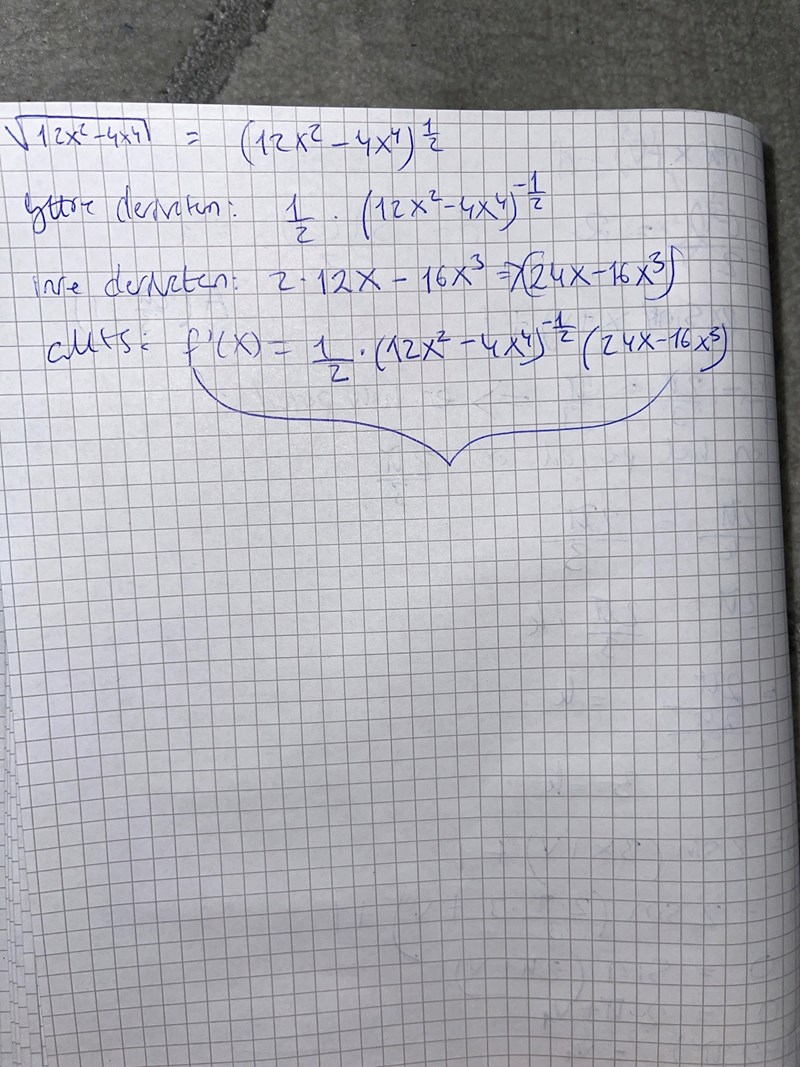 √(12x²-4x⁴) = (12x² - 4x⁴)^(1/2)
yttre derivatan: 1/2 · (12x²-4x⁴)^(-1/2)
inre derivatan: 2·12x - 16x³ => (24x-16x³)
alltså: f'(x) = 1/2 · (12x² - 4x⁴)^(-1/2) (24x-16x³)